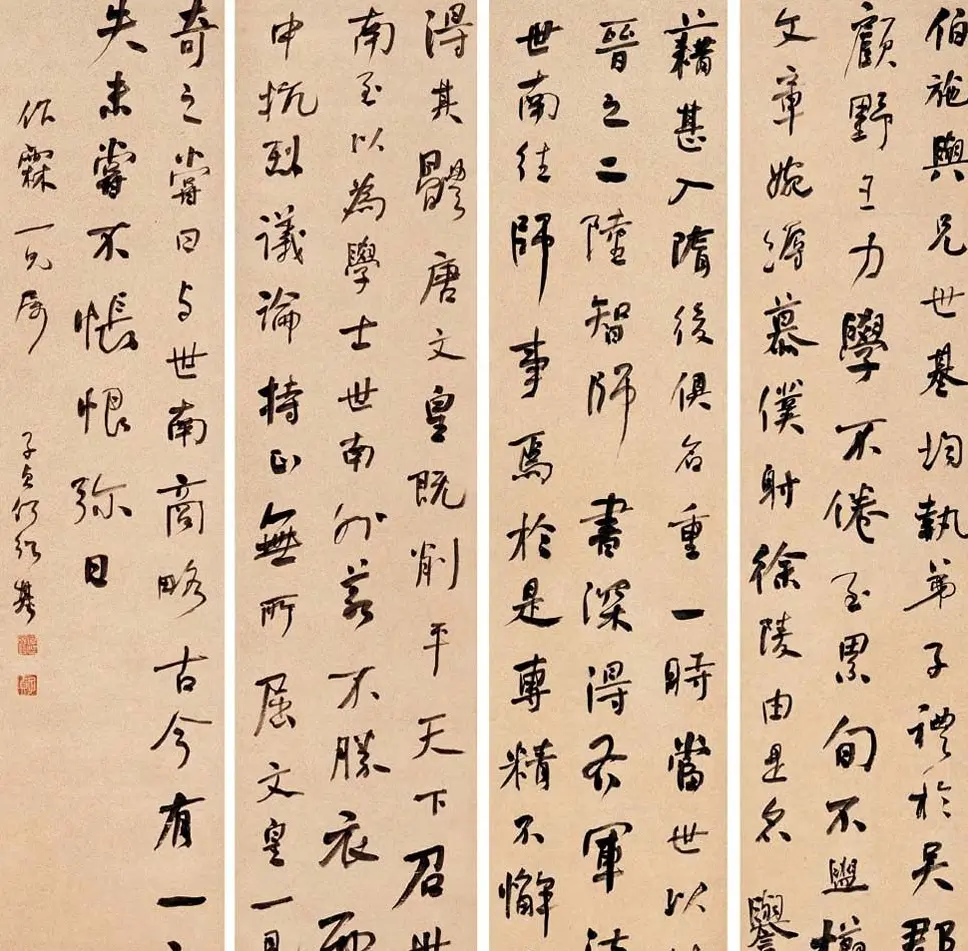 伯施與兄世基均執弟子禮於吳郡
顧野王力學不倦至累旬不盥櫛
文章婉縟慕僕射徐陵由是名譽
藉甚入隋後俱名重一時當世以
晉之二陸智師書深得右軍法
世南往師事焉於是專精不懈
得其體唐文皇既削平天下召世
南至以為學士世南外若不勝衣而
中抗烈議論持正無所屈文皇一見
奇之嘗曰與世南商略古今有一
失未嘗不悵恨弥日
作霖一兄屬
子貞何紹基